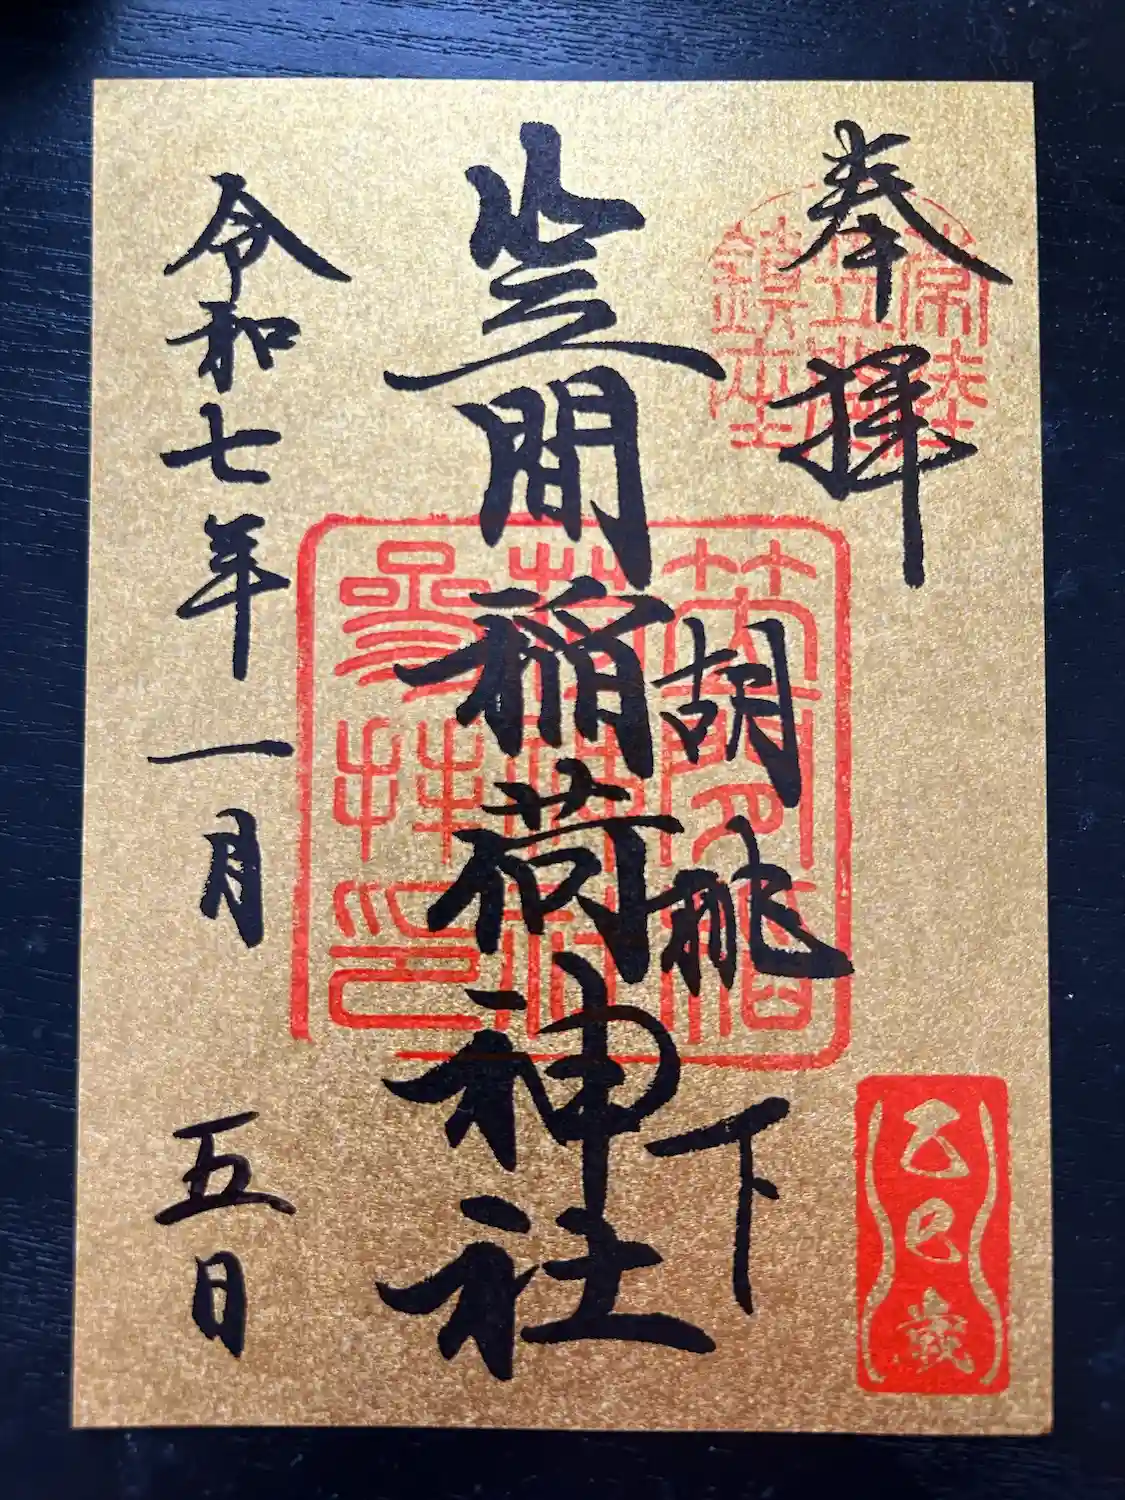 奉拝
胡桃下
笠間稲荷神社
令和七年一月五日
笠間稲
荷神社
参拝印
乙巳歳